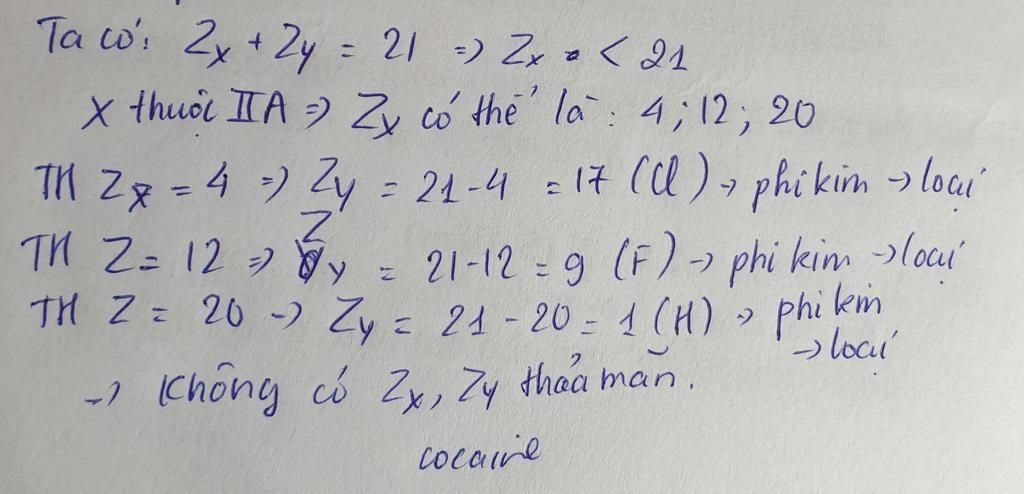 Ta có: Zx + Zy = 21 => Zx < 21
X thuộc IIA => Zx có thể là: 4; 12; 20
TH Zx = 4 => Zy = 21-4 = 17 (Cl) → phi kim → loại
TH Z = 12 => Zy = 21-12 = 9 (F) → phi kim → loại
TH Z = 20 → Zy = 21 - 20 = 1 (H) → phi kim
→ loại
→ Không có Zx, Zy thỏa mãn.
cocaine